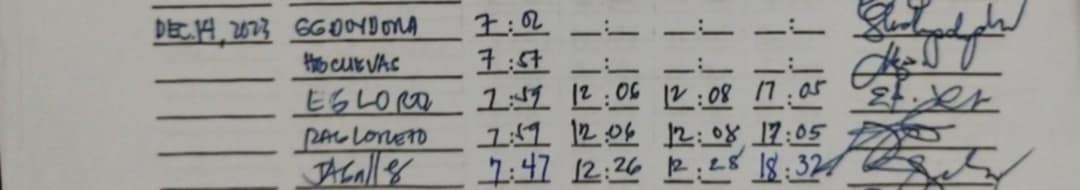 DEC. 14, 2023 GGDOYDORA 7:02 __:__ __:__ __:__
HBCUEVAS 7:57 __:__ __:__ __:__
7:59 12:06 12:08 17:05
RAGLORETO 7:59 12:06 12:08 17:05
7:47 12:26 12:28 18:32